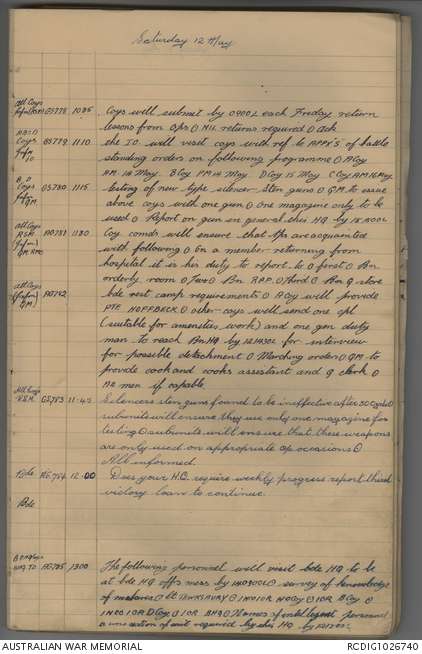 Saturday 12 May
All Coys
GS778 1035 Coys will submit by 0900L each Friday return
lessons from ops 0 Nil returns required 0 ack
A B C D
Coys GS779 1110 the IO will visit coys with ref to APPX'S of battle
IO standing orders on following programme 0 A Coy
AM 14 May B Coy PM 14 May D Coy 15 May C Coy AM 16 May
B, D
Coys GS780 1115 testing of new type silencer Sten guns 0 QM to issue
QM above coys with one gun 0 One magazine only to be
used 0 Report on gun in general this HQ by
all Coys
RSM A0781 1130 Coy comds will ensure that tps are acquainted
QM RMO with following 0 On a member returning from
hospital it is his duty to report to 0 first 0 Bn
orderly room 0 Two 0 Bn RAP 0 Third 0 Bn Q store
all Coys
QM A0782 bde rest camp requirements 0 A Coy will provide
PTE HOFFBECK 0 other coys will send one cpl
(suitable for amenities work) and one gen duty
man to reach Bn HQ by 121430L for interview
for possible detachment 0 Marching order 0 QM to
provide cook and cooks assistant and q clerk 0
men if capable
All Coys
RSM GS783 11.45 Silencers sten guns found to be ineffective after 50 cycles 0
subunits will ensure they use only one magazine for
testing 0 subunits will ensure that these weapons
are only used on appropriate op occasions 0
All informed.
Bde 784 12.00 Does your H.Q. require weekly progress report third
victory loan to continue.
Bde
785 1300 The following personnel will visit bde HQ to be
at bde HQ offrs mess by 140900L 0 survey of knowledge
of 0 Lt TEWKSBURY 0 1 NCO 1 OR A Coy 0 1 OR B Coy 0
1 NCO 1 OR D Coy 0 1 OR BHQ 0 Names of intelligent personnel
section of unit required by this HQ by
AUSTRALIAN WAR MEMORIAL
RCDIG1026740